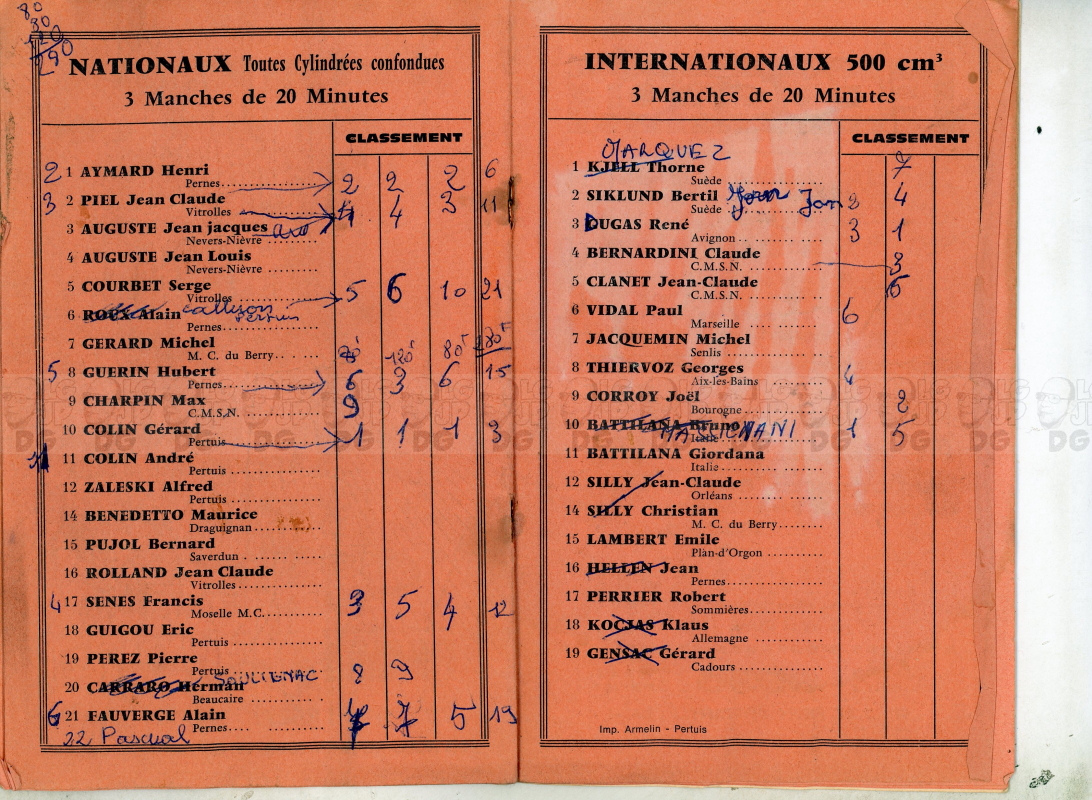 80
30
120
290
NATIONAUX Toutes Cylindrées confondues
3 Manches de 20 Minutes
CLASSEMENT
2 1 AYMARD Henri 6
Pernes 2 2 2
3 2 PIEL Jean Claude
Vitrolles 4 4 3 11
3 AUGUSTE Jean jacques
Nevers-Nièvre
4 AUGUSTE Jean Louis
Nevers-Nièvre
5 COURBET Serge
Vitrolles 5 6 10 21
6 ROUX Alain
Pertuis
Pernes
7 GERARD Michel
M. C. du Berry 80F 120F 80F 280F
5 8 GUERIN Hubert
Pernes 6 3 6 15
9 CHARPIN Max
C.M.S.N. 9
10 COLIN Gérard
Pertuis 1 1 1 3
11 COLIN André
Pertuis
12 ZALESKI Alfred
Pertuis
14 BENEDETTO Maurice
Draguignan
15 PUJOL Bernard
Saverdun
16 ROLLAND Jean Claude
Vitrolles
4 17 SENES Francis
Moselle M.C. 3 5 4 12
18 GUIGOU Eric
Pertuis
19 PEREZ Pierre
Pertuis 8 9
20 CARRARO Herman SOULIGNAC
Beaucaire
6 21 FAUVERGE Alain
Pernes 7 7 5 19
22 Pascual
INTERNATIONAUX 500 cm³
3 Manches de 20 Minutes
CLASSEMENT
MARQUEZ
1 KJELL Thorne 7
Suède
2 SIKLUND Bertil Jan 2 4
Suède
3 DUGAS René 3 1
Avignon
4 BERNARDINI Claude
C.M.S.N. 3
5 CLANET Jean-Claude 6
C.M.S.N.
6 VIDAL Paul 6
Marseille
7 JACQUEMIN Michel
Senlis
8 THIERVOZ Georges 4
Aix-les-Bains
9 CORROY Joël 2
Bourogne
10 BATTILANA Bruno 1 5
Italie
11 BATTILANA Giordana
Italie
12 SILLY Jean-Claude
Orléans
14 SILLY Christian
M. C. du Berry
15 LAMBERT Emile
Plan-d'Orgon
16 HELLEN Jean
Pernes
17 PERRIER Robert
Sommières
18 KOCJAS Klaus
Allemagne
19 GENSAC Gérard
Cadours
Imp. Armelin - Pertuis